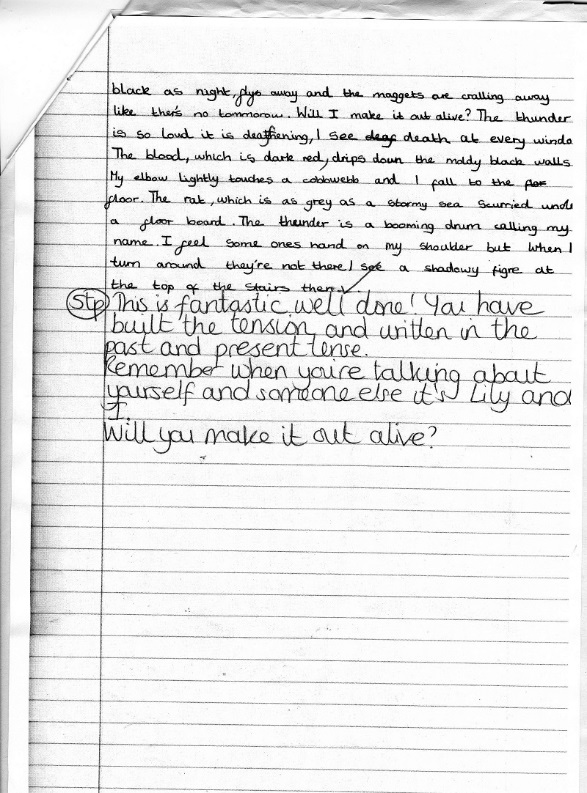 black as night, flys away and the maggets are cralling away
like there's no tommorow. Will I make it out alive? The thunder
is so loud it is deaffening, I see death at every windo
The blood, which is dark red, drips down the moldy black walls.
My elbow lightly touches a cobbwebb and I fall to the
floor. The rat, which is as grey as a stormy sea scurried unde
a floor board. The thunder is a booming drum calling my
name. I feel some ones hand on my shoulder but when I
turn around they're not there I see a shadowy figre at
the top of the stairs then.
Stp This is fantastic well done! You have
built the tension and written in the
past and present tense.
Remember when you're talking about
yourself and someone else it's Lily and
I.
Will you make it out alive?